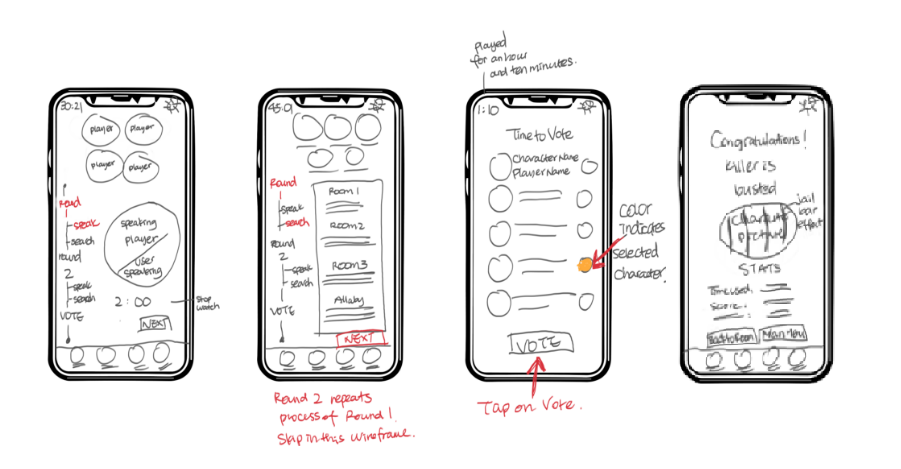 30:21
player player
player player
1
Round
speak
search
round
2
speak
search
VOTE
speaking
player
user
speaking
2:00
Stop
watch
NEXT
45:01
Round
speak
search
round
2
speak
search
VOTE
ROOM 1
ROOM 2
ROOM 3
NEXT
Round 2 repeats
process of Round 1.
Skip in this wireframe.
played
for an hour
and ten minutes.
1:10
Time to Vote
Character Name
Player Name
VOTE
Color
Indicates
selected
character.
Tap on Vote.
Congratulations!
Killer is
busted
Character
picture
jail
bar
effect
STATS
Time used:
Score:
Back to Room Main Menu